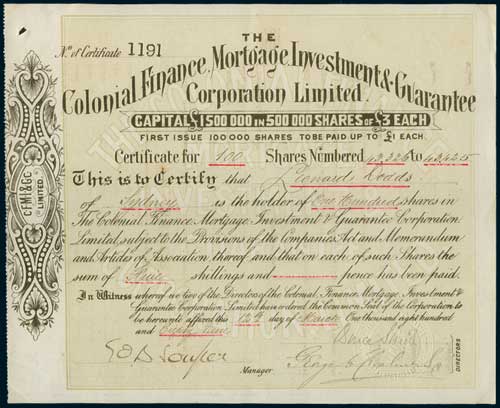 THE
No. of Certificate 1191
Colonial Finance, Mortgage, Investment & Guarantee
Corporation Limited.
CAPITAL £1500 000 IN 500 000 SHARES OF £3 EACH
FIRST ISSUE 100 000 SHARES TO BE PAID UP TO £1 EACH.
Certificate for 100 Shares Numbered to
This is to Certify that Leonard Dodds
of Sydney is the holder of One Hundred shares in
The Colonial Finance, Mortgage, Investment & Guarantee Corporation
Limited, subject to the Provisions of the Companies Act and Memorandum
and Articles of Association thereof and that on each of such Shares the
sum of shillings and pence has been paid.
In Witness whereof we two of the Directors of the Colonial Finance, Mortgage, Investment &
Guarantee Corporation Limited have ordered the Common Seal of the Corporation to
be hereunto affixed this day of March One thousand eight hundred
and Eighty
Manager
DIRECTORS
C.F.M.I.&G.C.
LIMITED